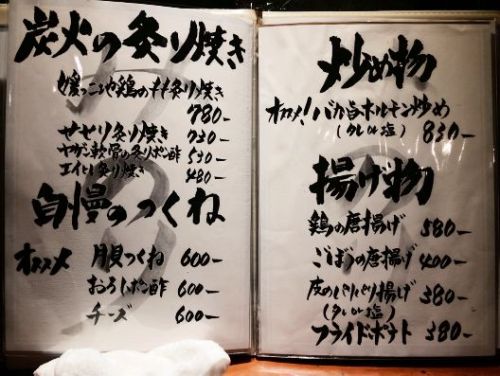 炭火の炙り焼き
媛っこ地鶏のもも炙り焼き
780-
せせり炙り焼き 730-
ヤゲン軟骨の炙りポン酢 530-
エイヒレ炙り焼き 480-
自慢のつくね
オススメ 月見つくね 600-
おろしポン酢 600-
チーズ 600-
炒め物
オススメ!バカ旨ホルモン炒め
(タレor塩) 830-
揚げ物
鶏の唐揚げ 580-
ごぼうの唐揚げ 400-
皮のパリパリ揚げ 380-
(タレor塩)
フライドポテト 380-